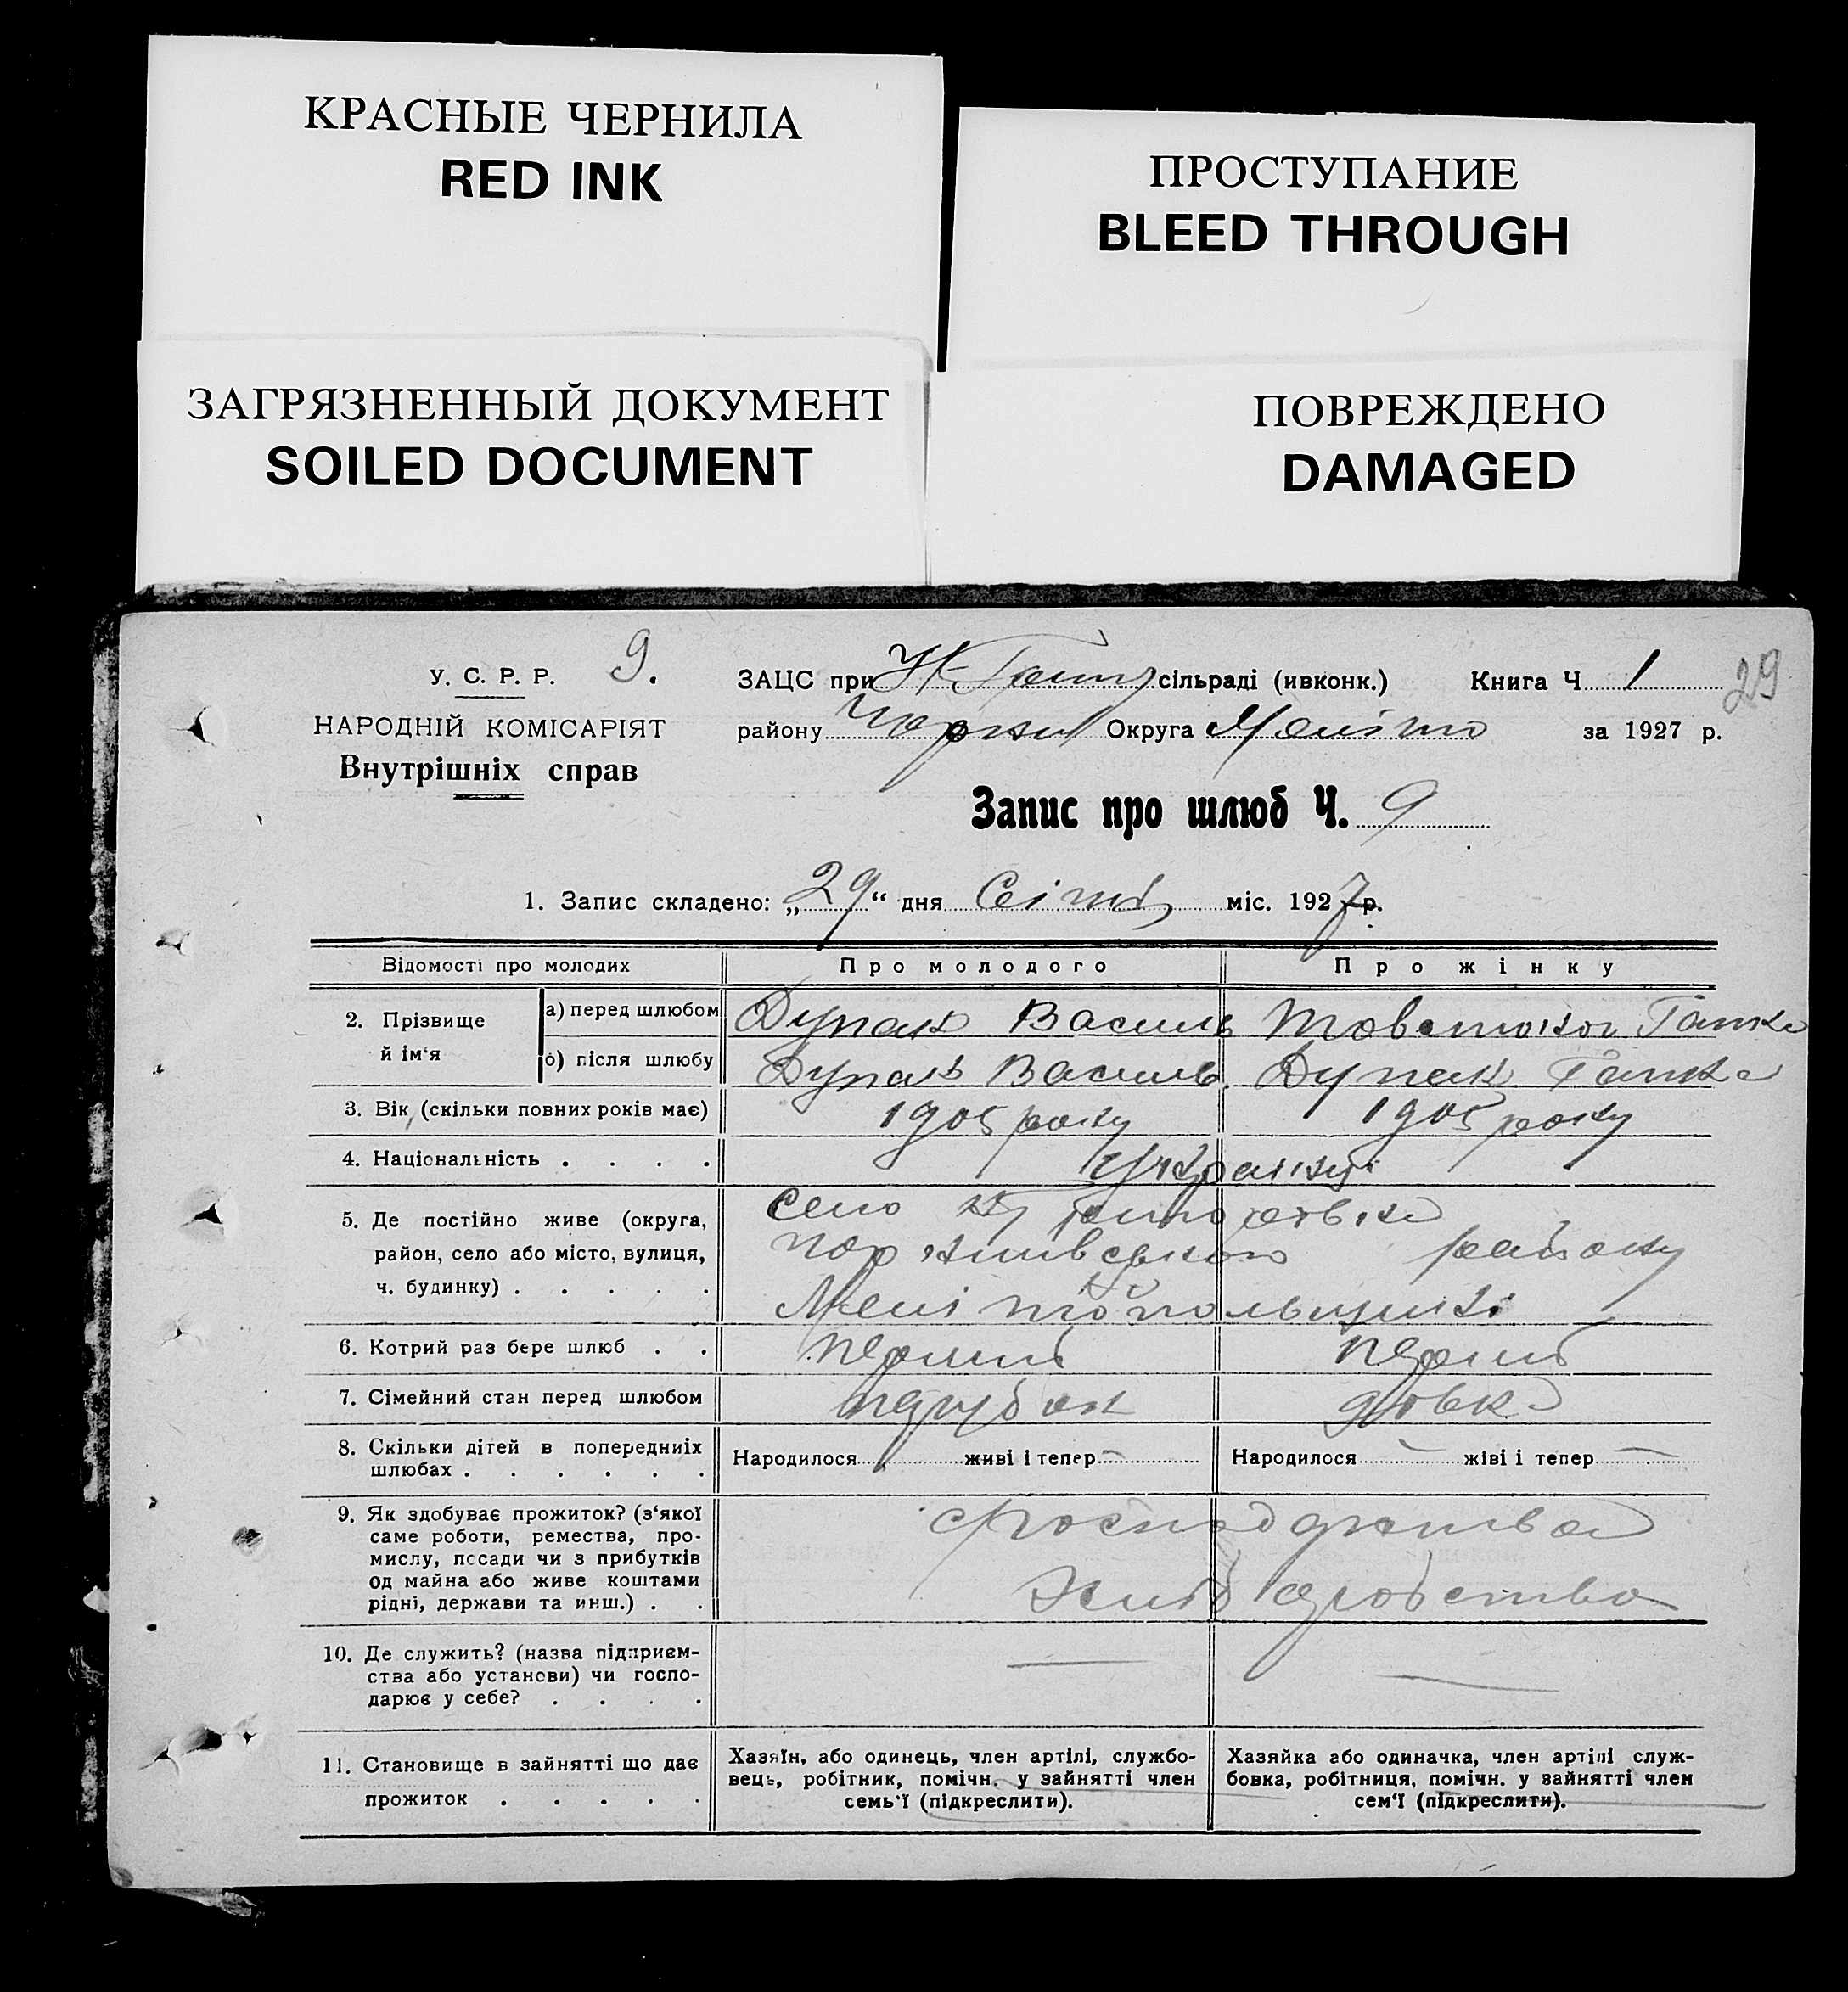 КРАСНЫЕ ЧЕРНИЛА
RED INK
ПРОСТУПАНИЕ
BLEED THROUGH
ЗАГРЯЗНЕННЫЙ ДОКУМЕНТ
SOILED DOCUMENT
ПОВРЕЖДЕНО
DAMAGED
У. С. Р. Р. 9.
НАРОДНІЙ КОМІСАРІЯТ
Внутрішніх справ
ЗАЦС при сільраді (ивконк.) Книга Ч 1 29
району Округа за 1927 р.
Запис про шлюб Ч. 9
1. Запис складено: „29“ дня міс. 1927 р.
Відомості про молодих Про молодого Про жінку
2. Прізвище й ім‘я
а) перед шлюбом Дупак Василь Ганка
б) після шлюбу Дупак Василь. Дупак Ганка
3. Вік, (скільки повних років має) 1905 року 1905 року
4. Національність . . . .
5. Де постійно живе (округа, село
район, село або місто, вулиця, району
ч. будинку) . . . . .
6. Котрий раз бере шлюб . . перший перший
7. Сімейний стан перед шлюбом парубок дівка
8. Скільки дітей в попередниіх
шлюбах . . . . . .
Народилося живі і тепер — Народилося — жіві і тепер —
9. Як здобуває прожиток? (з‘якої
саме роботи, ремества, про-
мислу, посади чи з прибутків
од майна або живе коштами
рідні, держави та инш.) . .
10. Де служить? (назва підприєм-
ства або установи) чи госпо-
дарює у себе? . . . .
— —
11. Становище в зайнятті що дає
прожиток . . . . .
Хазяїн, або одинець, член артілі, службо-
вець, робітник, помічн. у зайнятті член
семь‘ї (підкреслити).
Хазяйка або одиначка, член артілі служ-
бовка, робітниця, помічн. у зайнятті член
сем‘ї (підкреслити).